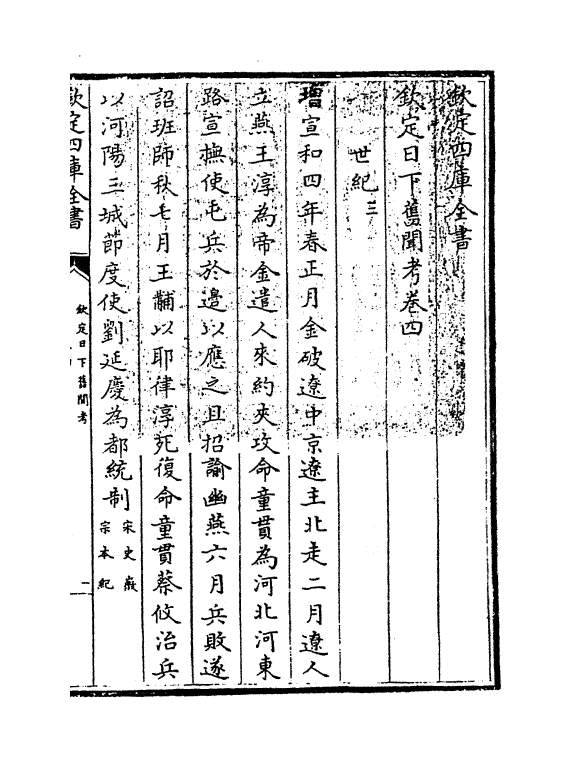 欽定四庫全書
欽定日下舊聞考卷四
世紀三
增宣和四年春正月金破遼中京遼主北走二月遼人
立燕王淳為帝金遣人來約夾攻命童貫為河北河東
路宣撫使屯兵於邊以應之且招諭幽燕六月兵敗遂
詔班師秋七月王黼以耶律淳死復命童貫蔡攸治兵
以河陽三城節度使劉延慶為都統制宋史徽宗本紀
欽定四庫全書
欽定日下舊聞考
一